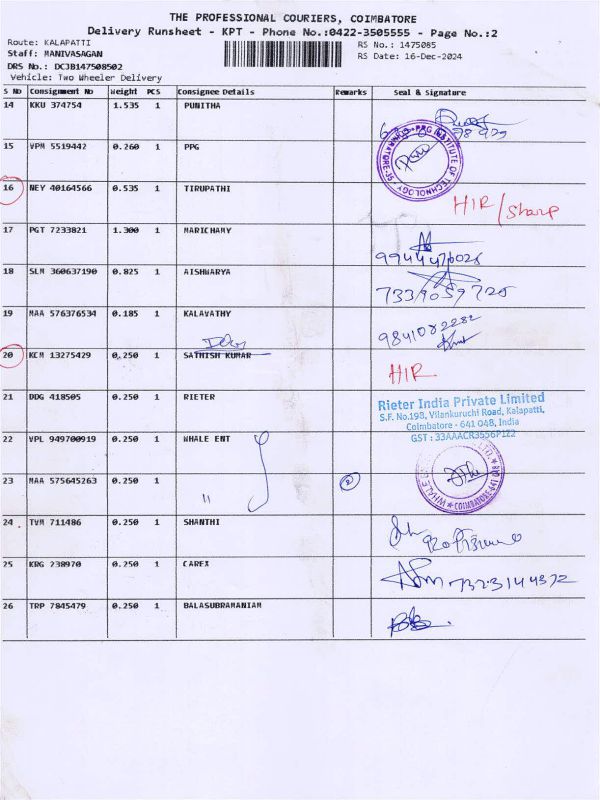 THE PROFESSIONAL COURIERS, COIMBATORE
Delivery Runsheet - KPT - Phone No.:0422-3505555 - Page No.:2
Route: KALAPATTI
Staff: MANIVASAGAN
DRS No.: DCJB147508502
Vehicle: Two Wheeler Delivery
RS No.: 1475085
RS Date: 16-Dec-2024
S No Consignment No Weight PCS Consignee Details Remarks Seal & Signature
14 KKU 374754 1.535 1 PUNITHA
15 VPM 5519442 0.260 1 PPG
PPG INSTITUTE OF TECHNOLOGY
16 NEY 40164566 0.535 1 TIRUPATHI HIR/sharp
17 PGT 7233821 1.300 1 MARICHAMY
18 SLM 360637190 0.825 1 AISHWARYA
19 MAA 576376534 0.185 1 KALAVATHY 9841082282
20 KCM 13275429 0.250 1 SATHISH KUMAR HIR
21 DDG 418505 0.250 1 RIETER
Rieter India Private Limited
S.F. No.198, Vilankuruchi Road, Kalapatti,
Coimbatore - 641 048, India
GST : 33AAACR3556P1Z2
22 VPL 949700919 0.250 1 WHALE ENT
23 MAA 575645263 0.250 1 " 2
24 TVM 711486 0.250 1 SHANTHI
25 KRG 238970 0.250 1 CAREX 7323144372
26 TRP 7845479 0.250 1 BALASUBRAMANIAM